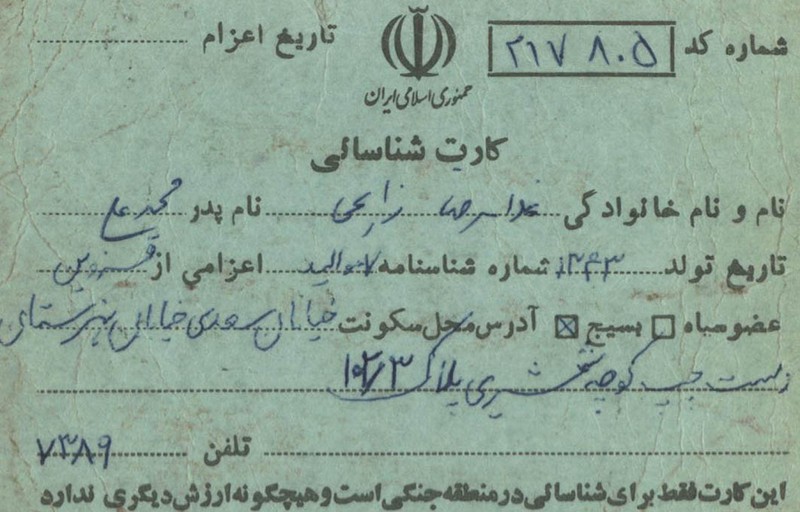 شماره کد ۲۱۷ ۸۰۵ تاریخ اعزام
جمهوری اسلامی ایران
کارت شناسائی
نام و نام خانوادگی غلامرضا نام پدر محمد علی
تاریخ تولد ۱۳۴۳ شماره شناسنامه ۷ اعزامی از قزوین
عضو سپاه بسیج آدرس محل سکونت خیابان سعدی خیابان
دست چپ کوچه پلاک ۱۰۲/۳
تلفن ۷۳۸۹
این کارت فقط برای شناسائی در منطقه جنگی است و هیچگونه ارزش دیگری ندارد